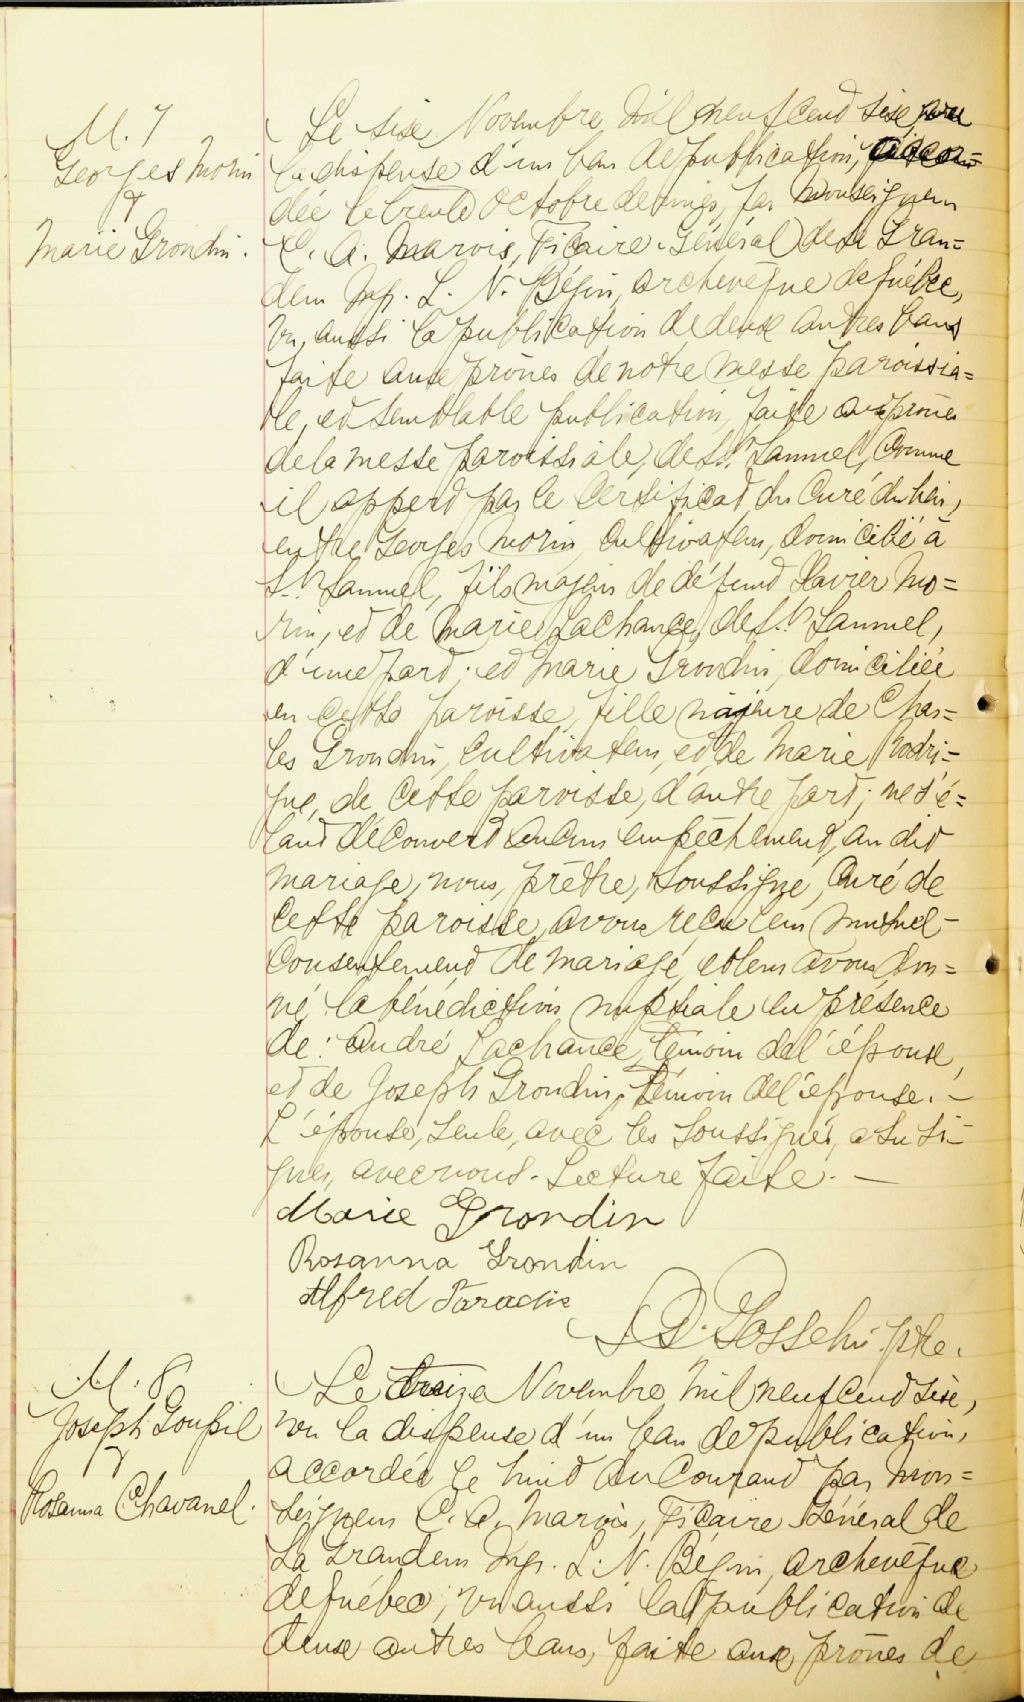 M. 7
Georges Morin
&
Marie Grondin.
Le six Novembre, mil neuf cent six, vu
la dispense d'un ban de publication, accor=
dée le trente Octobre dernier, par Monseigneur
C. A. Marois, Vicaire-Général de Sa Gran=
deur Mgr. L. N. Bégin, archevêque de Québec,
vu, aussi la publication de deux autres bans
faite aux prônes de notre messe paroissia=
le, et semblable publication, faite aux prônes
de la messe paroissiale, de St. Samuel, comme
il appert par le certificat du Curé du lieu,
entre Georges Morin, cultivateur, domicilié à
St. Samuel, fils majeur de défunt Xavier Mo=
rin, et de Marie Lachance, de St. Samuel,
d'une part; et Marie Grondin, domiciliée
en cette paroisse, fille majeure de Char=
les Grondin, cultivateur, et de Marie Rodri=
gue, de cette paroisse, d'autre part; ne s'é=
tant découvert aucun empêchement, au dit
mariage, nous, prêtre, soussigné, Curé de
cette paroisse, avons reçu leur mutuel-
consentement de mariage, et leur avons don=
né la bénédiction nuptiale en présence
de: André Lachance, témoin de l'époux,
et de Joseph Grondin, témoin de l'épouse.-
L'épouse, seule, avec les soussignés, a su si-
gner, avec nous. Lecture faite. —
Marie Grondin
Rosanna Grondin
Alfred Paradis
ptre.
M. 8
Joseph Goupil
&
Rosanna Chavanel.
Le treize Novembre, mil neuf cent six,
vu la dispense d'un ban de publication,
accordée le huit du courant par Mon=
seigneur C. A. Marois, Vicaire Général de
Sa Grandeur Mgr. L. N. Bégin, archevêque
de Québec; vu aussi la publication de
deux autres bans, faite aux prônes de